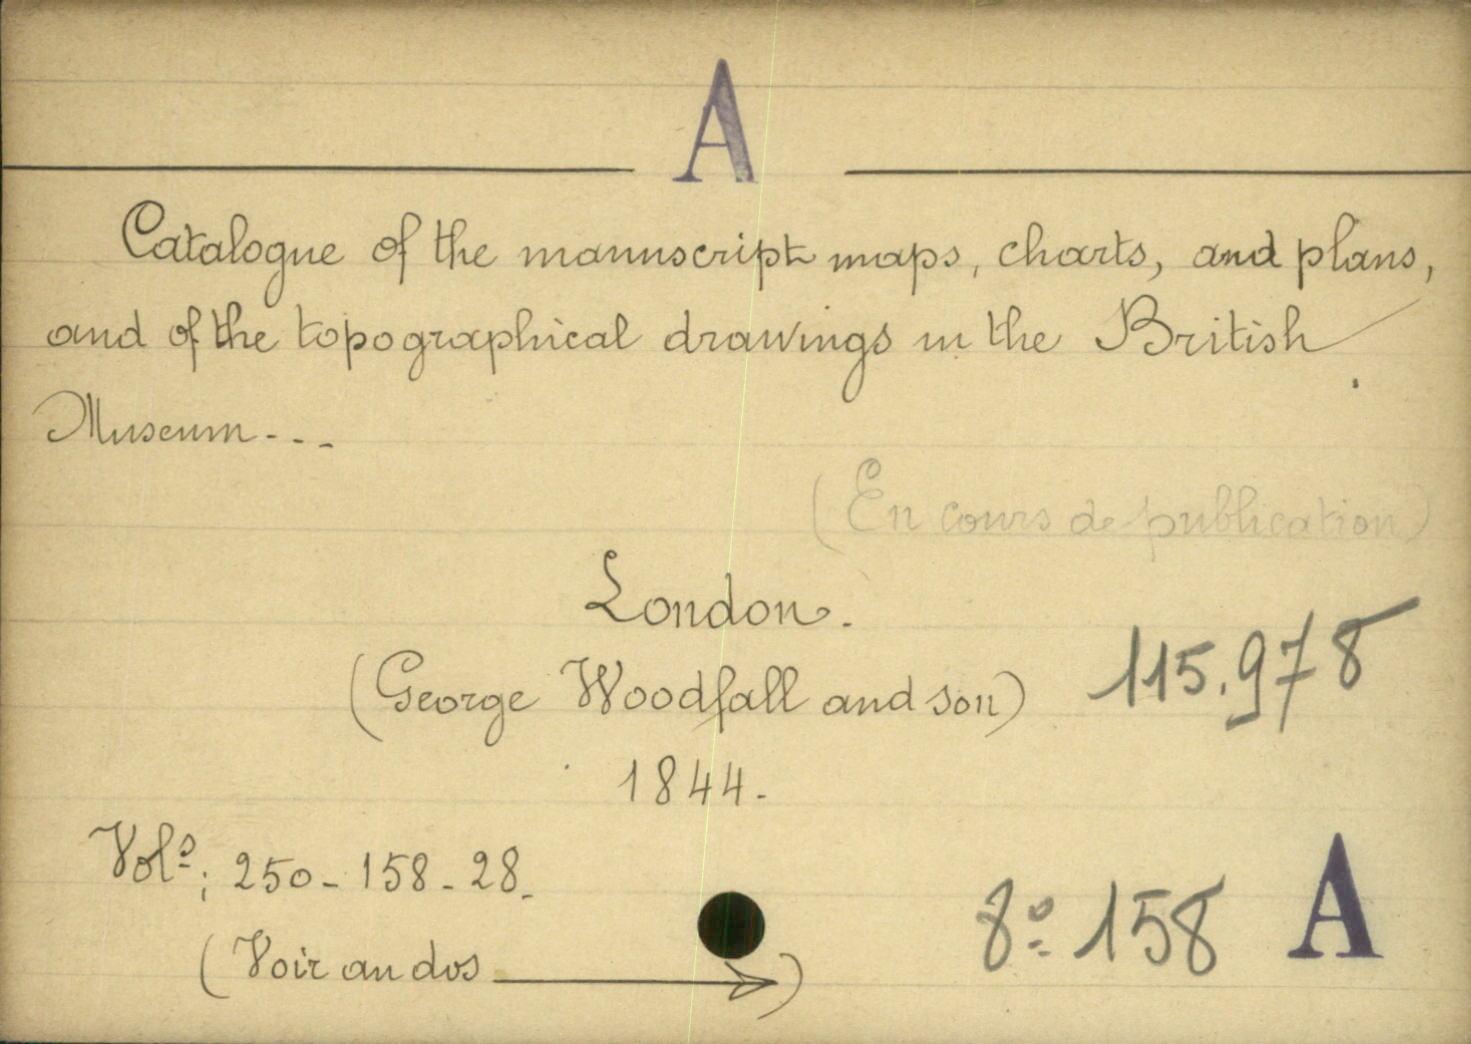 A
Catalogue of the manuscript maps, charts, and plans,
and of the topographical drawings in the British
Museum---
(En cours de publication)
London.
(George Woodfall and son)
115.978
1844.
Vols; 250-158-28.
8º 158 A
(Voir au dos →)